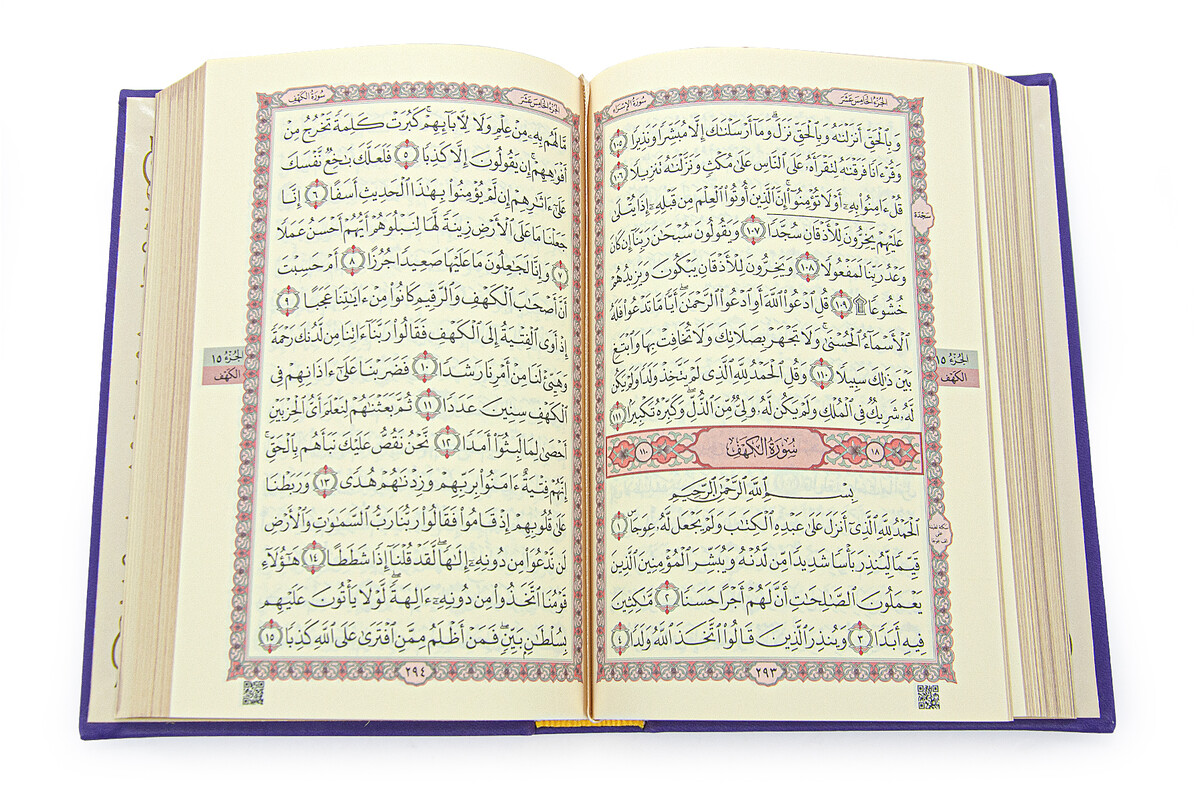 الجزء الخامس عشر
سورة الإسراء
وَبِالْحَقِّ أَنزَلْنَٰهُ وَبِالْحَقِّ نَزَلَ ۗ وَمَا أَرْسَلْنَٰكَ إِلَّا مُبَشِّرًا وَنَذِيرًا ١٠٥
وَقُرْءَانًا فَرَقْنَٰهُ لِتَقْرَأَهُۥ عَلَى النَّاسِ عَلَىٰ مُكْثٍ وَنَزَّلْنَٰهُ تَنزِيلًا ١٠٦
قُلْ ءَامِنُوا۟ بِهِۦٓ أَوْ لَا تُؤْمِنُوٓا۟ ۚ إِنَّ الَّذِينَ أُوتُوا۟ الْعِلْمَ مِن قَبْلِهِۦٓ إِذَا يُتْلَىٰ
عَلَيْهِمْ يَخِرُّونَ لِلْأَذْقَانِ سُجَّدًا ١٠٧ وَيَقُولُونَ سُبْحَٰنَ رَبِّنَآ إِن كَانَ
وَعْدُ رَبِّنَا لَمَفْعُولًا ١٠٨ وَيَخِرُّونَ لِلْأَذْقَانِ يَبْكُونَ وَيَزِيدُهُمْ
خُشُوعًا ۩ ١٠٩ قُلِ ادْعُوا۟ اللَّهَ أَوِ ادْعُوا۟ الرَّحْمَٰنَ ۖ أَيًّا مَّا تَدْعُوا۟ فَلَهُ
الْأَسْمَآءُ الْحُسْنَىٰ ۚ وَلَا تَجْهَرْ بِصَلَاتِكَ وَلَا تُخَافِتْ بِهَا وَابْتَغِ
بَيْنَ ذَٰلِكَ سَبِيلًا ١١٠ وَقُلِ الْحَمْدُ لِلَّهِ الَّذِى لَمْ يَتَّخِذْ وَلَدًا وَلَمْ يَكُن
لَّهُۥ شَرِيكٌ فِى الْمُلْكِ وَلَمْ يَكُن لَّهُۥ وَلِىٌّ مِّنَ الذُّلِّ ۖ وَكَبِّرْهُ تَكْبِيرًۢا ١١١
١٨ سورة الكهف ١١٠
بِسْمِ اللَّهِ الرَّحْمَٰنِ الرَّحِيمِ
الْحَمْدُ لِلَّهِ الَّذِىٓ أَنزَلَ عَلَىٰ عَبْدِهِ الْكِتَٰبَ وَلَمْ يَجْعَل لَّهُۥ عِوَجَا ۜ ١
قَيِّمًا لِّيُنذِرَ بَأْسًا شَدِيدًا مِّن لَّدُنْهُ وَيُبَشِّرَ الْمُؤْمِنِينَ الَّذِينَ
يَعْمَلُونَ الصَّٰلِحَٰتِ أَنَّ لَهُمْ أَجْرًا حَسَنًا ٢ مَّٰكِثِينَ
فِيهِ أَبَدًا ٣ وَيُنذِرَ الَّذِينَ قَالُوا۟ اتَّخَذَ اللَّهُ وَلَدًا ٤
٢٩٣
سجدة
الجزء ١٥
الكهف
الجزء الخامس عشر
سورة الكهف
مَّا لَهُم بِهِۦ مِنْ عِلْمٍ وَلَا لِءَابَآئِهِمْ ۚ كَبُرَتْ كَلِمَةً تَخْرُجُ مِنْ
أَفْوَٰهِهِمْ ۚ إِن يَقُولُونَ إِلَّا كَذِبًا ٥ فَلَعَلَّكَ بَٰخِعٌ نَّفْسَكَ
عَلَىٰٓ ءَاثَٰرِهِمْ إِن لَّمْ يُؤْمِنُوا۟ بِهَٰذَا الْحَدِيثِ أَسَفًا ٦ إِنَّا
جَعَلْنَا مَا عَلَى الْأَرْضِ زِينَةً لَّهَا لِنَبْلُوَهُمْ أَيُّهُمْ أَحْسَنُ عَمَلًا
٧ وَإِنَّا لَجَٰعِلُونَ مَا عَلَيْهَا صَعِيدًا جُرُزًا ٨ أَمْ حَسِبْتَ
أَنَّ أَصْحَٰبَ الْكَهْفِ وَالرَّقِيمِ كَانُوا۟ مِنْ ءَايَٰتِنَا عَجَبًا ٩
إِذْ أَوَى الْفِتْيَةُ إِلَى الْكَهْفِ فَقَالُوا۟ رَبَّنَآ ءَاتِنَا مِن لَّدُنكَ رَحْمَةً
وَهَيِّئْ لَنَا مِنْ أَمْرِنَا رَشَدًا ١٠ فَضَرَبْنَا عَلَىٰٓ ءَاذَانِهِمْ فِى
الْكَهْفِ سِنِينَ عَدَدًا ١١ ثُمَّ بَعَثْنَٰهُمْ لِنَعْلَمَ أَىُّ الْحِزْبَيْنِ
أَحْصَىٰ لِمَا لَبِثُوٓا۟ أَمَدًا ١٢ نَّحْنُ نَقُصُّ عَلَيْكَ نَبَأَهُم بِالْحَقِّ ۚ
إِنَّهُمْ فِتْيَةٌ ءَامَنُوا۟ بِرَبِّهِمْ وَزِدْنَٰهُمْ هُدًى ١٣ وَرَبَطْنَا
عَلَىٰ قُلُوبِهِمْ إِذْ قَامُوا۟ فَقَالُوا۟ رَبُّنَا رَبُّ السَّمَٰوَٰتِ وَالْأَرْضِ
لَن نَّدْعُوَا۟ مِن دُونِهِۦٓ إِلَٰهًا ۖ لَّقَدْ قُلْنَآ إِذًا شَطَطًا ١٤ هَٰٓؤُلَآءِ
قَوْمُنَا اتَّخَذُوا۟ مِن دُونِهِۦٓ ءَالِهَةً ۖ لَّوْلَا يَأْتُونَ عَلَيْهِم
بِسُلْطَٰنٍۭ بَيِّنٍ ۖ فَمَنْ أَظْلَمُ مِمَّنِ افْتَرَىٰ عَلَى اللَّهِ كَذِبًا ١٥
٢٩٤
الجزء ١٥
الكهف